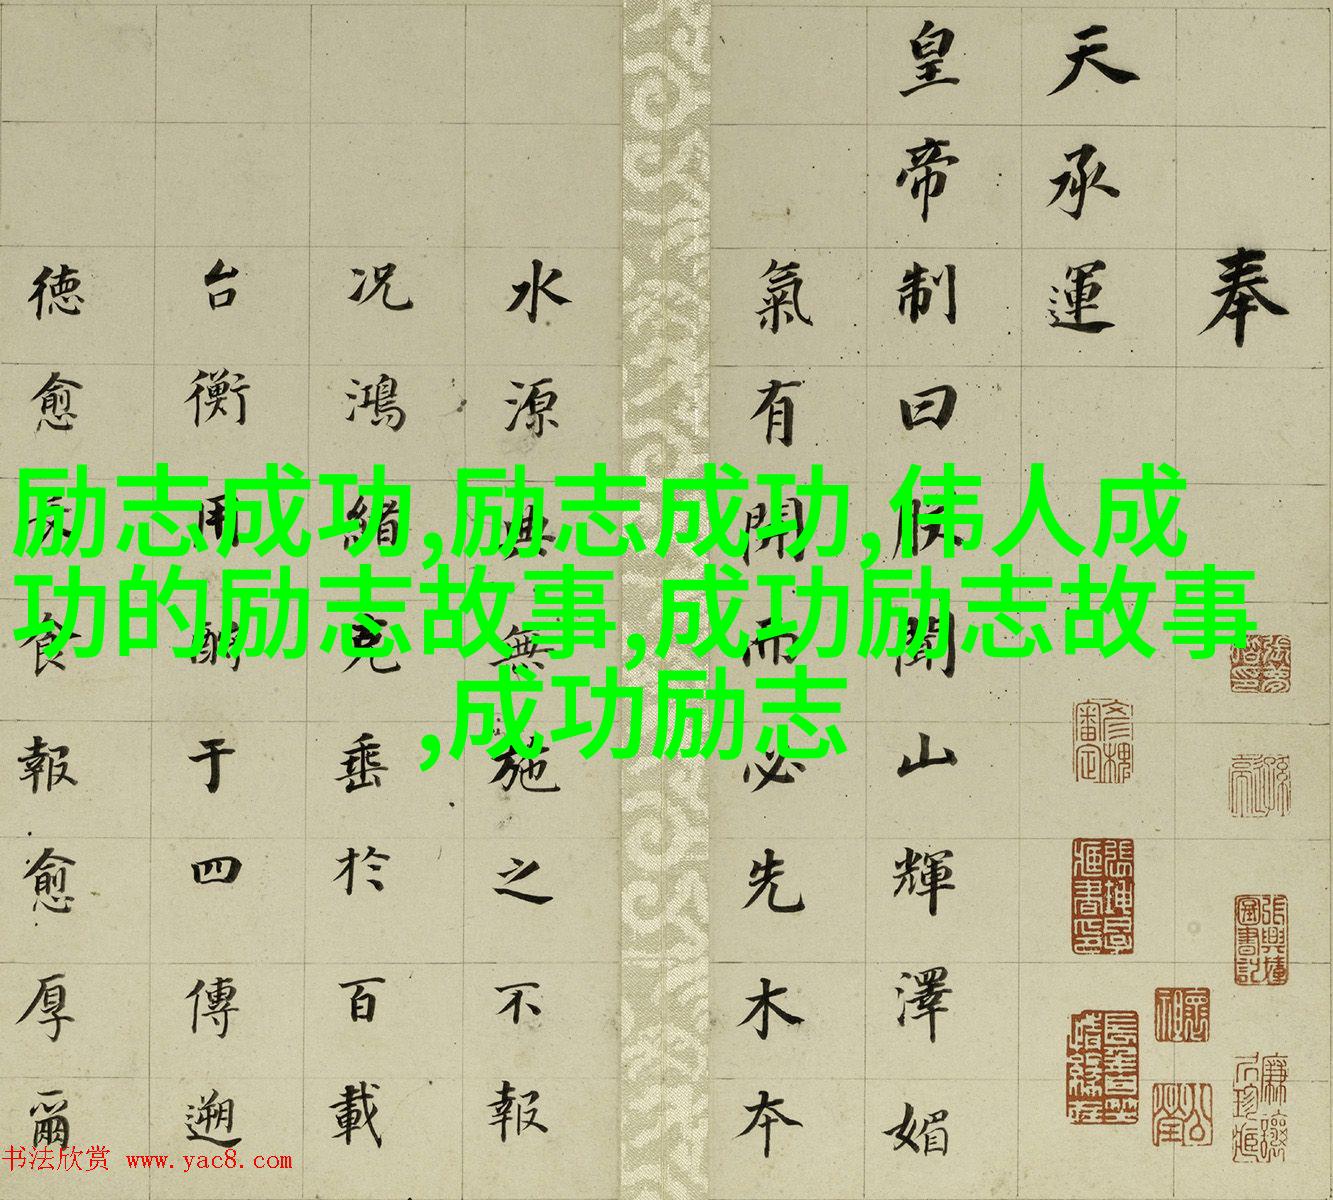 奉
天承運
皇帝制曰朕聞山輝澤媚
氣有開而必先木本
水源無施之不報
况鴻緒克垂於百載
台衡用酬于四傳遡
德愈食報愈厚爾
励志成功,励志成功,伟人成
功的励志故事,成功励志故事
,成功励志
书法欣赏 www.yac8.com